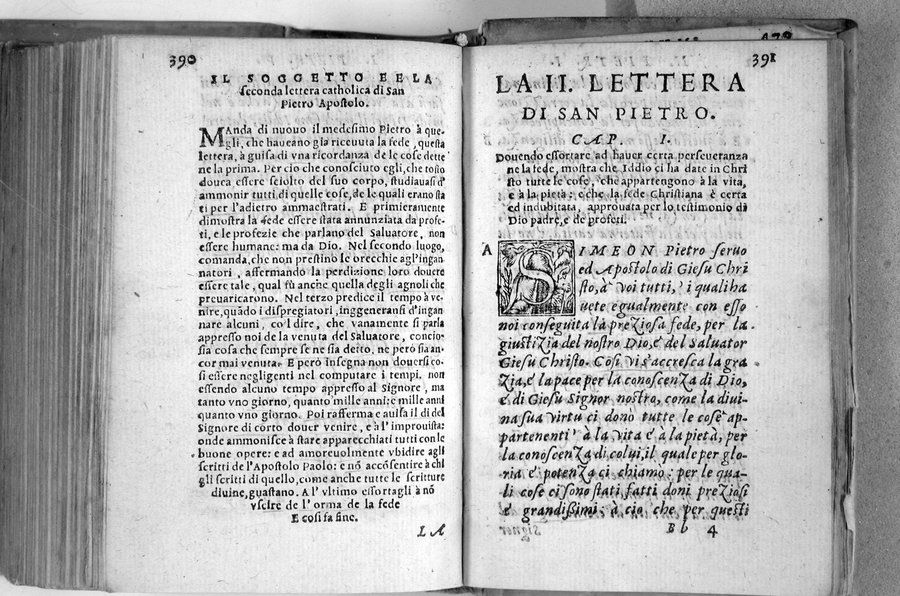 390
IL SOGGETTO EELA
seconda lettera catholica di San
Pietro Apostolo.
MAnda di nuouo il medesimo Pietro à que-
gli, che haueano gia riceuuta la fede, questa
lettera, à guisa di vna ricordanza de le cose dette
ne la prima. Per cio che conosciuto egli, che tosto
douca essere sciolto del suo corpo, studiauasi d'
ammonir tutti di quelle cose, de le quali erano sta
ti per l'adietro ammaestrati. E primieramente
dimostra la fede essere stata annunziata da profe-
ti, e le profezie che parlano del Saluatore, non
essere humane: ma da Dio. Nel secondo luogo,
comanda, che non prestino le orecchie agl'ingan
natori, affermando la perdizione loro douere
essere tale, qual fù anche quella degli agnoli che
preuaricarono. Nel terzo predice il tempo à ve-
nire, quãdo i dispregiatori, inggeneransi d'ingan
nare alcuni, co'l dire, che vanamente si parla
appresso noi de la venuta del Saluatore, concio-
sia cosa che sempre se ne sia detto, ne però sia an-
cor mai venuta. E però insegna non douersi co-
si essere negligenti nel computare i tempi, non
essendo alcuno tempo appresso al Signore, ma
tanto vno giorno, quanto mille anni: e mille anni
quanto vno giorno. Poi rafferma e auisa il dì del
Signore di corto douer venire, e à l'improuista:
onde ammonisce à stare apparecchiati tutti con le
buone opere: e ad amoreuolmente vbidire agli
scritti de l'Apostolo Paolo: e nõ accõsentire à chi
gli scritti di quello, come anche tutte le scritture
diuine, guastano. A l' vltimo essortagli à nõ
vscire de l'orma de la fede
E cosi fa fine.
LA
391
LA II. LETTERA
DI SAN PIETRO.
CAP. I.
Douendo essortare ad hauer certa perseueranza
ne la fede, mostra che Iddio ci ha date in Chri
sto tutte le cose, che appartengono à la vita,
e à la pietà: e che la fede Christiana è certa
ed indubitata, approuata per lo testimonio di
Dio padre, e de profeti.
A SIMEON Pietro seruo
ed Apostolo di Giesu Chri
sto, à voi tutti, i quali ha
uete egualmente con esso
noi conseguita la preziosa fede, per la
giustizia del nostro Dio, e del Saluator
Giesu Christo. Cosi vi s'accresca la gra
zia, e la pace per la conoscenza di Dio,
e di Giesu Signor nostro, come la diui-
na sua virtu ci donò tutte le cose ap-
partenenti à la vita e à la pietà, per
la conoscenza di colui, il quale per glo-
ria e potenza ci chiamo: per le qua-
li cose ci sono stati fatti doni preziosi
e grandissimi: à cio che per questi
Bb 4